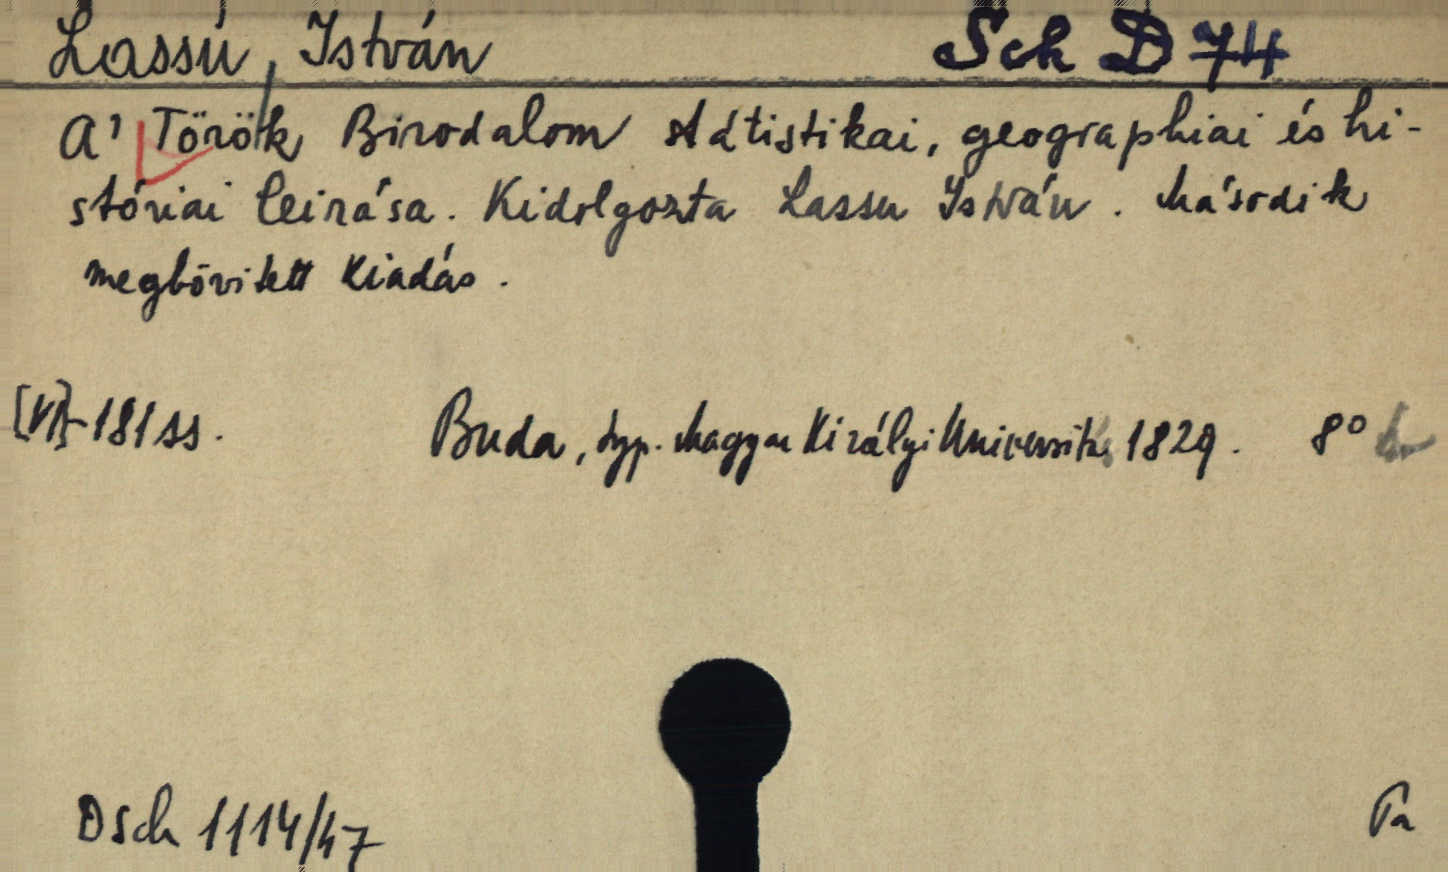 Lassú, István Sch D 74
A' Török Birodalom státistikai, geographiai és hi-
stóriai leirása. Kidolgozta Lassu István. Második
megbővitett kiadás.
[VI]-181 ss. Buda, typ. Magyar Királyi Universitás 1829. 8°
Dsch 1114/47 Pa